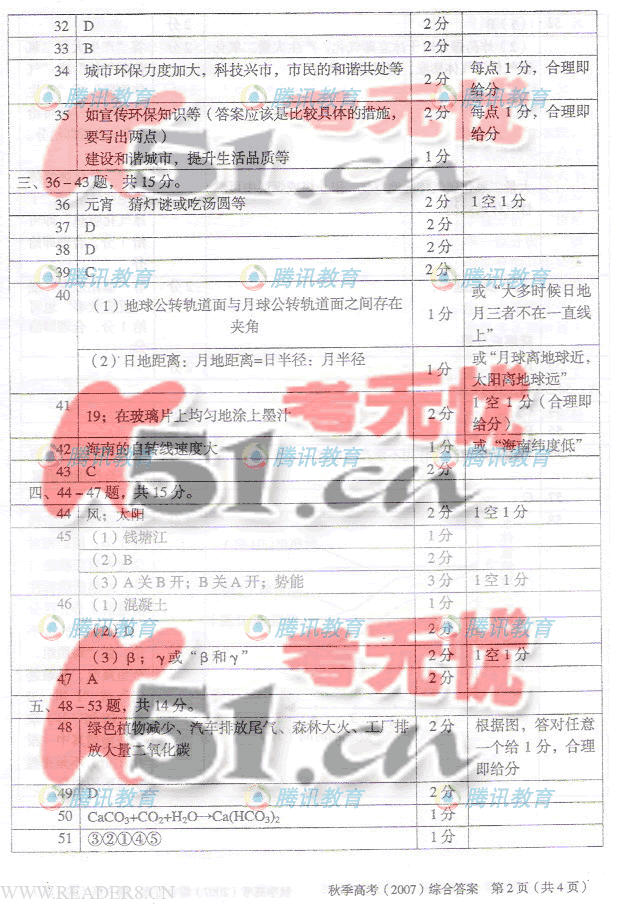 32 D 2分
33 B 2分
34 城市环保力度加大，科技兴市，市民的和谐共处等 2分 每点1分，合理即
给分
35 如宣传环保知识等（答案应该是比较具体的措施， 2分 每点1分，合理即
要写出两点） 给分
建设和谐城市，提升生活品质等 1分
三、36－43题，共15分。
36 元宵 猜灯谜或吃汤圆等 2分 1空1分
37 D 2分
38 D 2分
39 C 2分
40 （1）地球公转轨道面与月球公转轨道面之间存在 1分 或“大多时候日地
夹角 月三者不在一直线
上”
（2）日地距离：月地距离=日半径：月半径 1分 或“月球离地球近，
太阳离地球远”
41 19；在玻璃片上均匀地涂上墨汁 2分 1空1分（合理即
给分）
42 海南的自转线速度大 1分 或“海南纬度低”
43 C 2分
四、44－47题，共15分。
44 风；太阳 2分 1空1分
45 （1）钱塘江 1分
（2）B 2分
（3）A关B开；B关A开；势能 3分 1空1分
46 （1）混凝土 1分
（2）D 2分
（3）β；γ或“β和γ” 2分 1空1分
47 A 2分
五、48－53题，共14分。
48 绿色植物减少、汽车排放尾气、森林大火、工厂排 2分 根据图，答对任意
放大量二氧化碳 一个给1分，合理
即给分
49 D 2分
50 CaCO₃+CO₂+H₂O→Ca(HCO₃)₂ 1分
51 ③②①④⑤ 1分
秋季高考（2007）综合答案 第2页（共4页）
WWW.READER8.CN
考无忧
K51.cn
腾讯教育 腾讯教育
考无忧
K51.cn
腾讯教育 腾讯教育
腾讯教育 腾讯教育
考无忧
K51.cn
腾讯教育 腾讯教育
腾讯教育 腾讯教育